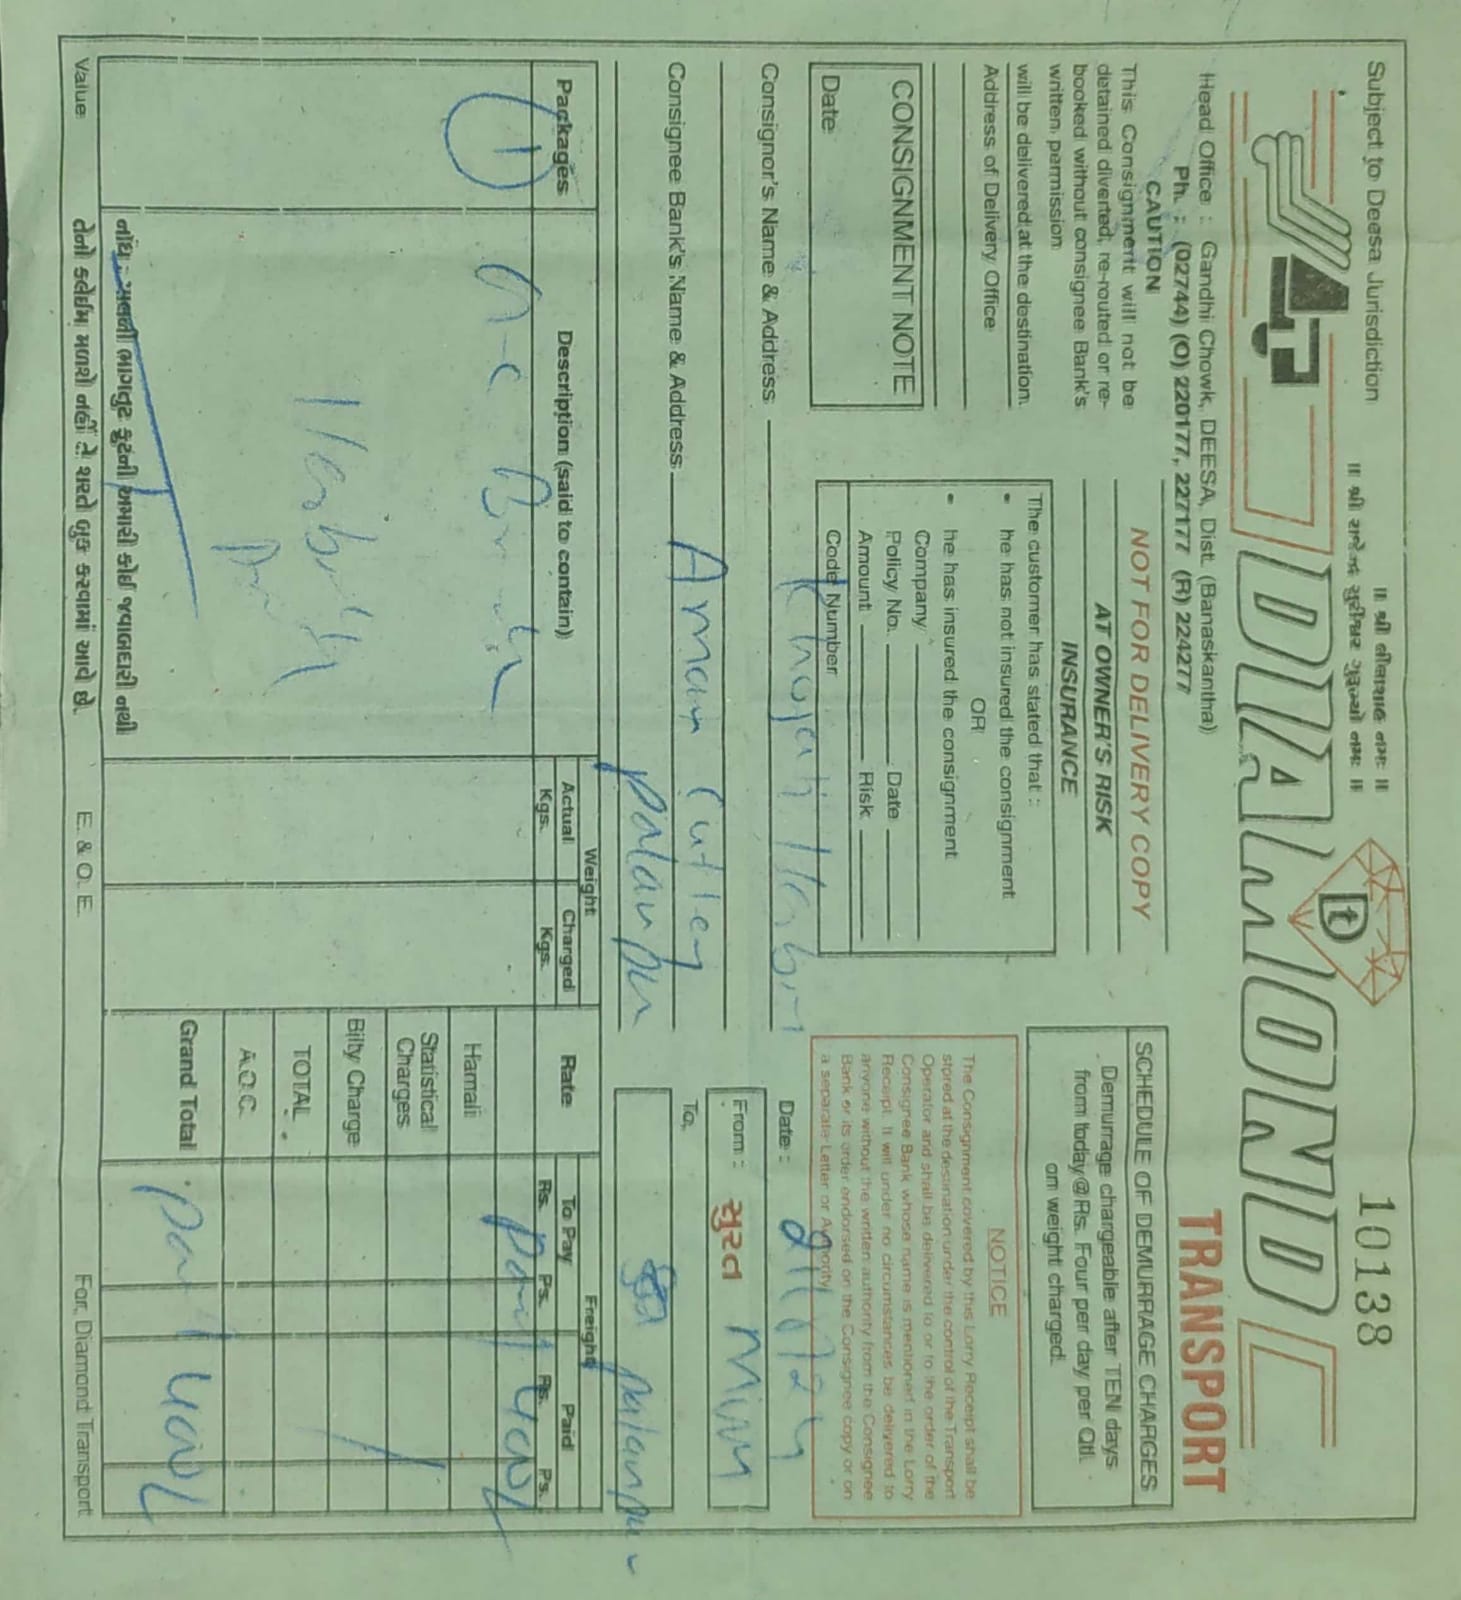 Subject to Deesa Jurisdiction
॥ શ્રી લીલાશાહ નમઃ ॥
10138
DIAMOND
TRANSPORT
Head Office : Gandhi Chowk, DEESA, Dist. (Banaskantha)
Ph. : (02744) (O) 220177, 227177 (R) 224277
CAUTION
This Consignment will not be
detained diverted, re-routed or re-
booked without consignee Bank's
written permission
will be delivered at the destination.
Address of Delivery Office
CONSIGNMENT NOTE
Date
NOT FOR DELIVERY COPY
AT OWNER'S RISK
INSURANCE
The customer has stated that :
• he has not insured the consignment
OR
• he has insured the consignment
Company
Policy No. Date
Amount Risk
Code Number
SCHEDULE OF DEMURRAGE CHARGES
Demurrage chargeable after TEN days
from today@Rs. Four per day per Qtl.
om weight charged.
NOTICE
The Consignment covered by this Lorry Receipt shall be
stored at the destination under the control of the Transport
Operator and shall be delivered to or to the order of the
Consignee Bank whose name is mentioned in the Lorry
Receipt. It will under no circumstances be delivered to
anyone without the written authority from the Consignee
Bank or its order endorsed on the Consignee copy or on
a separate Letter or Authority
Consignor's Name & Address
Date :
From : સુરત
Consignee Bank's Name & Address Aman Cutley
palanpur
To, palanpur
Packages
Description (said to contain)
Weight
Actual Kgs.
Charged Kgs.
Rate
Freight
To Pay
Rs. Ps.
Paid
Rs. Ps.
1
Hamali
Statistical
Charges
Bilty Charge
TOTAL
A.O.C.
Grand Total
નોંધ : ભાગતુટ ફુટની અમારી કોઈ જવાબદારી નથી
તેનો કલેઈમ મળશે નહીં તે શરતે બુક કરવામાં આવે છે.
Value
E. & O. E.
For, Diamond Transport